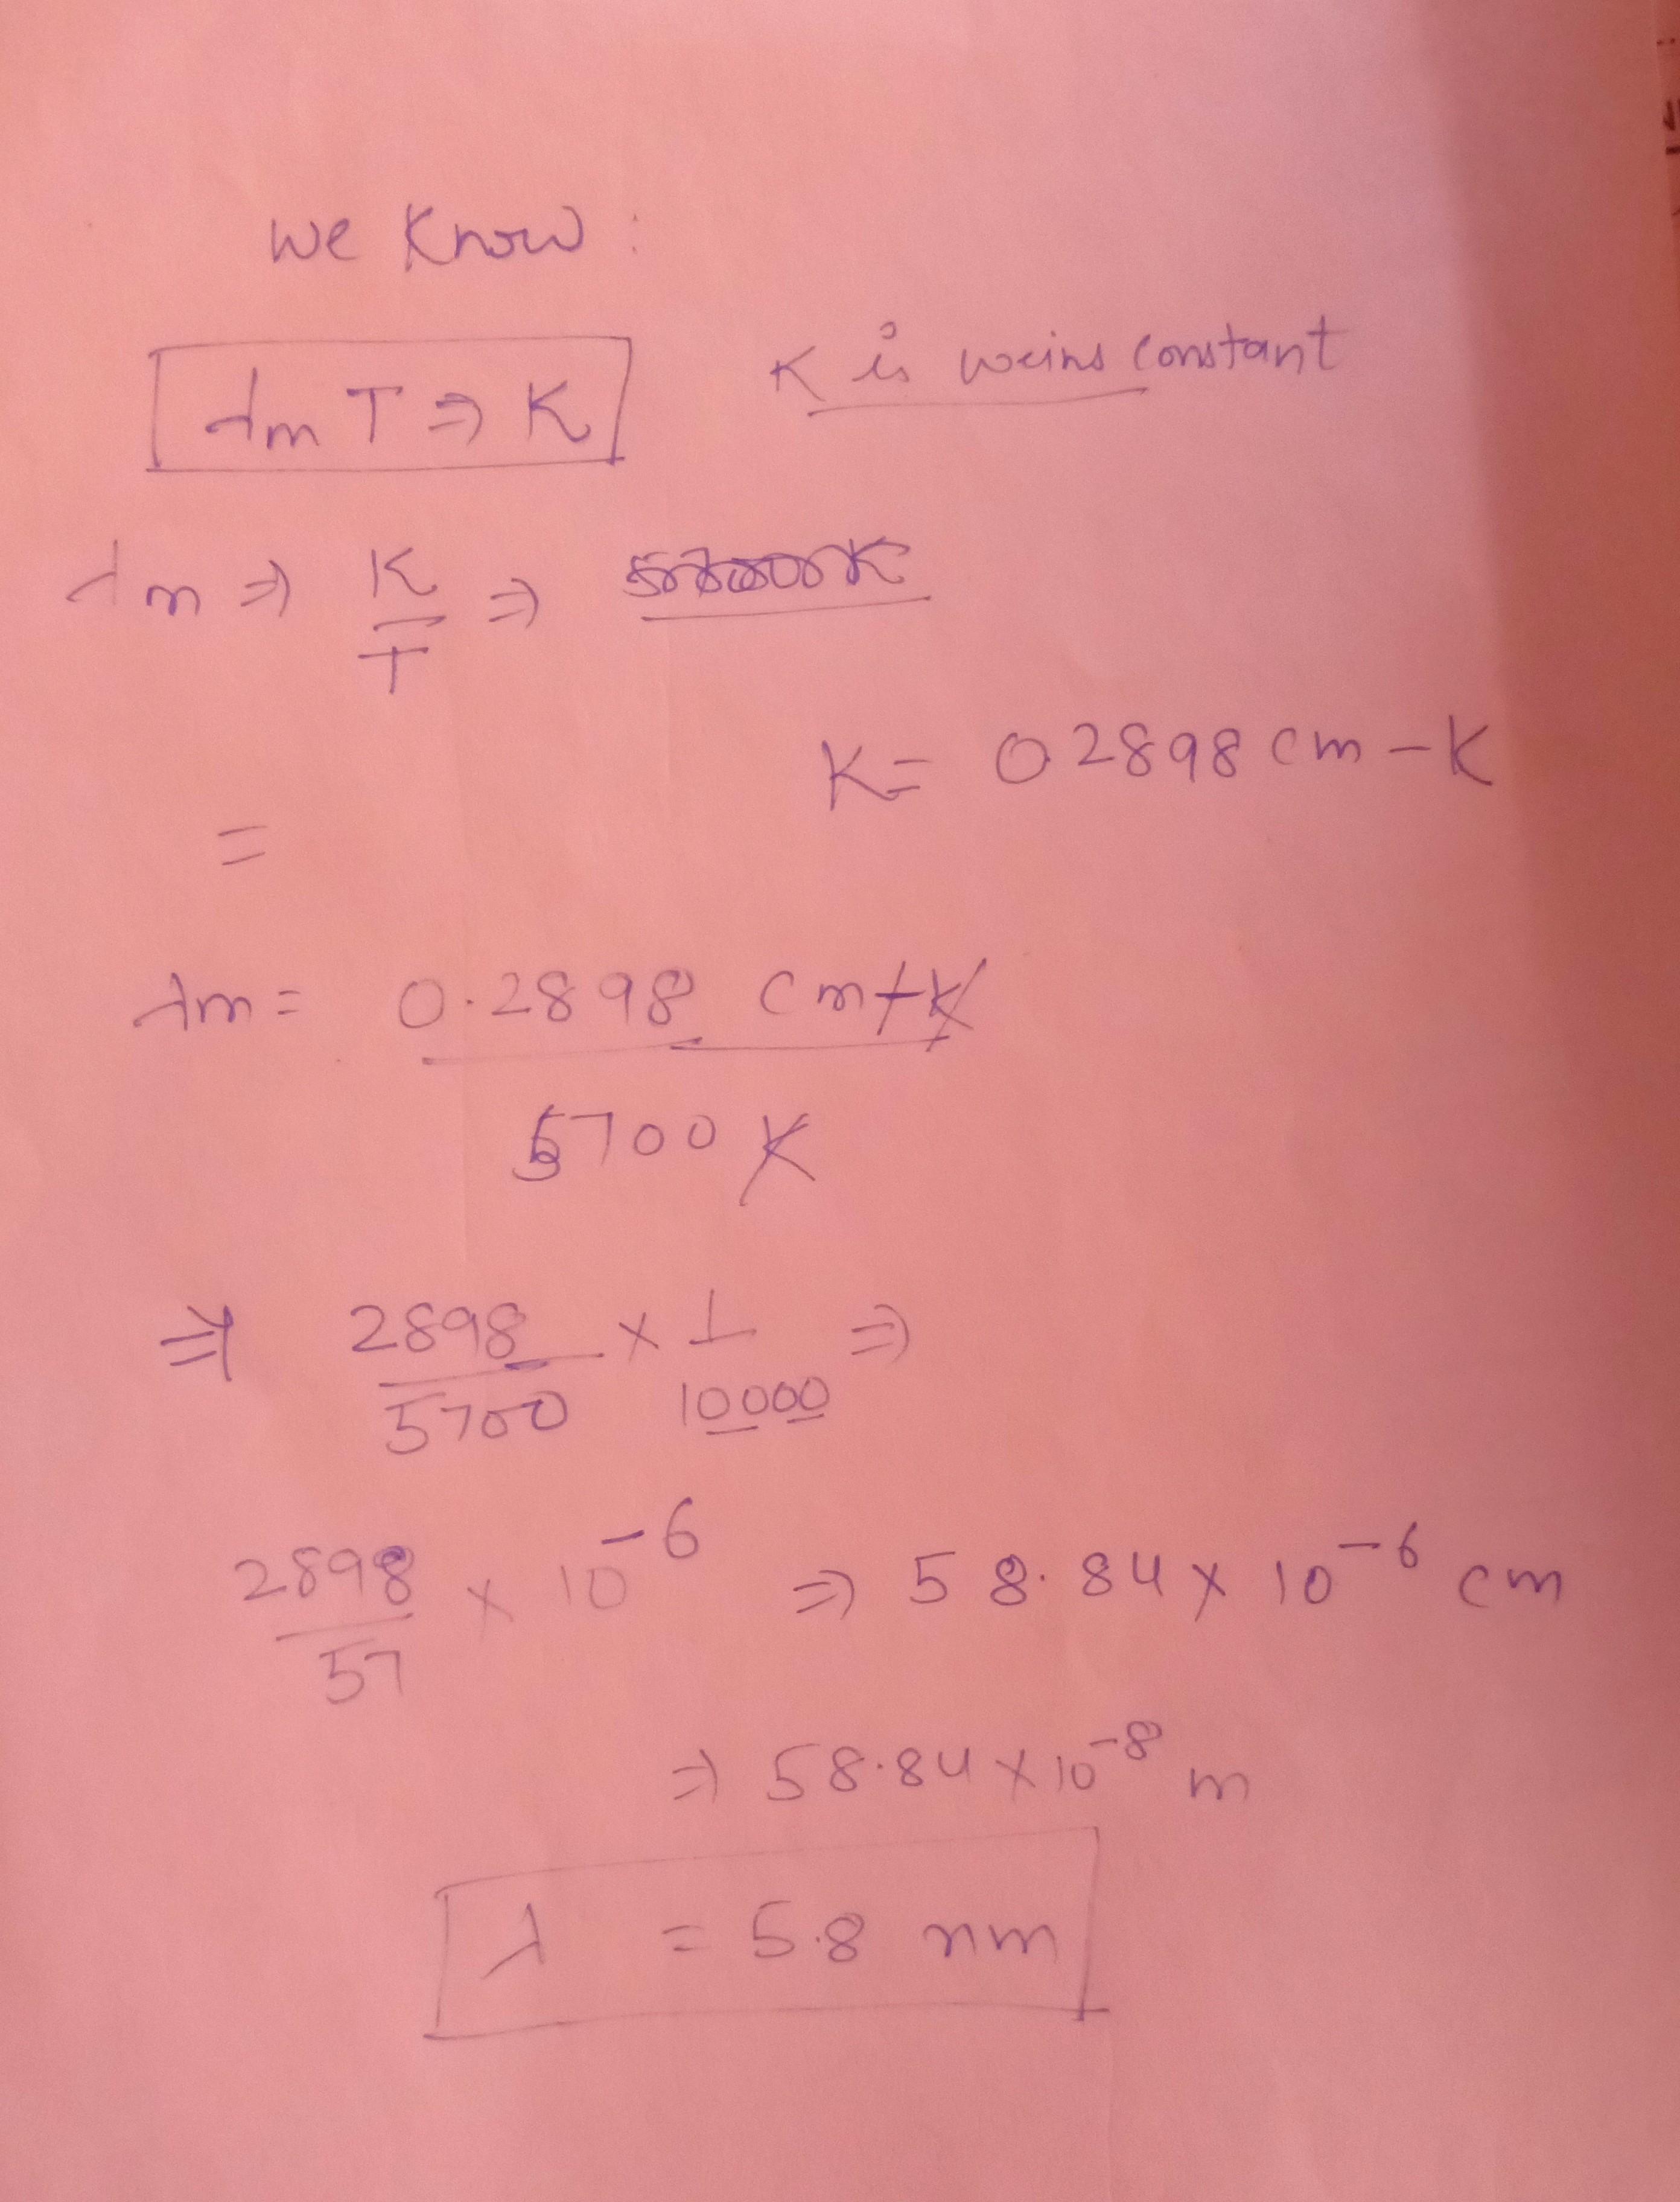 we Know :
λm T ⇒ K K is weins constant
λm ⇒ K/T ⇒
K = 0.2898 cm - K
=
λm = 0.2898 cm-K / 5700 K
⇒ 2898/5700 x 1/10000 ⇒
2898/57 x 10^-6 ⇒ 58.84 x 10^-6 cm
⇒ 58.84 x 10^-8 m
λ = 5.8 nm